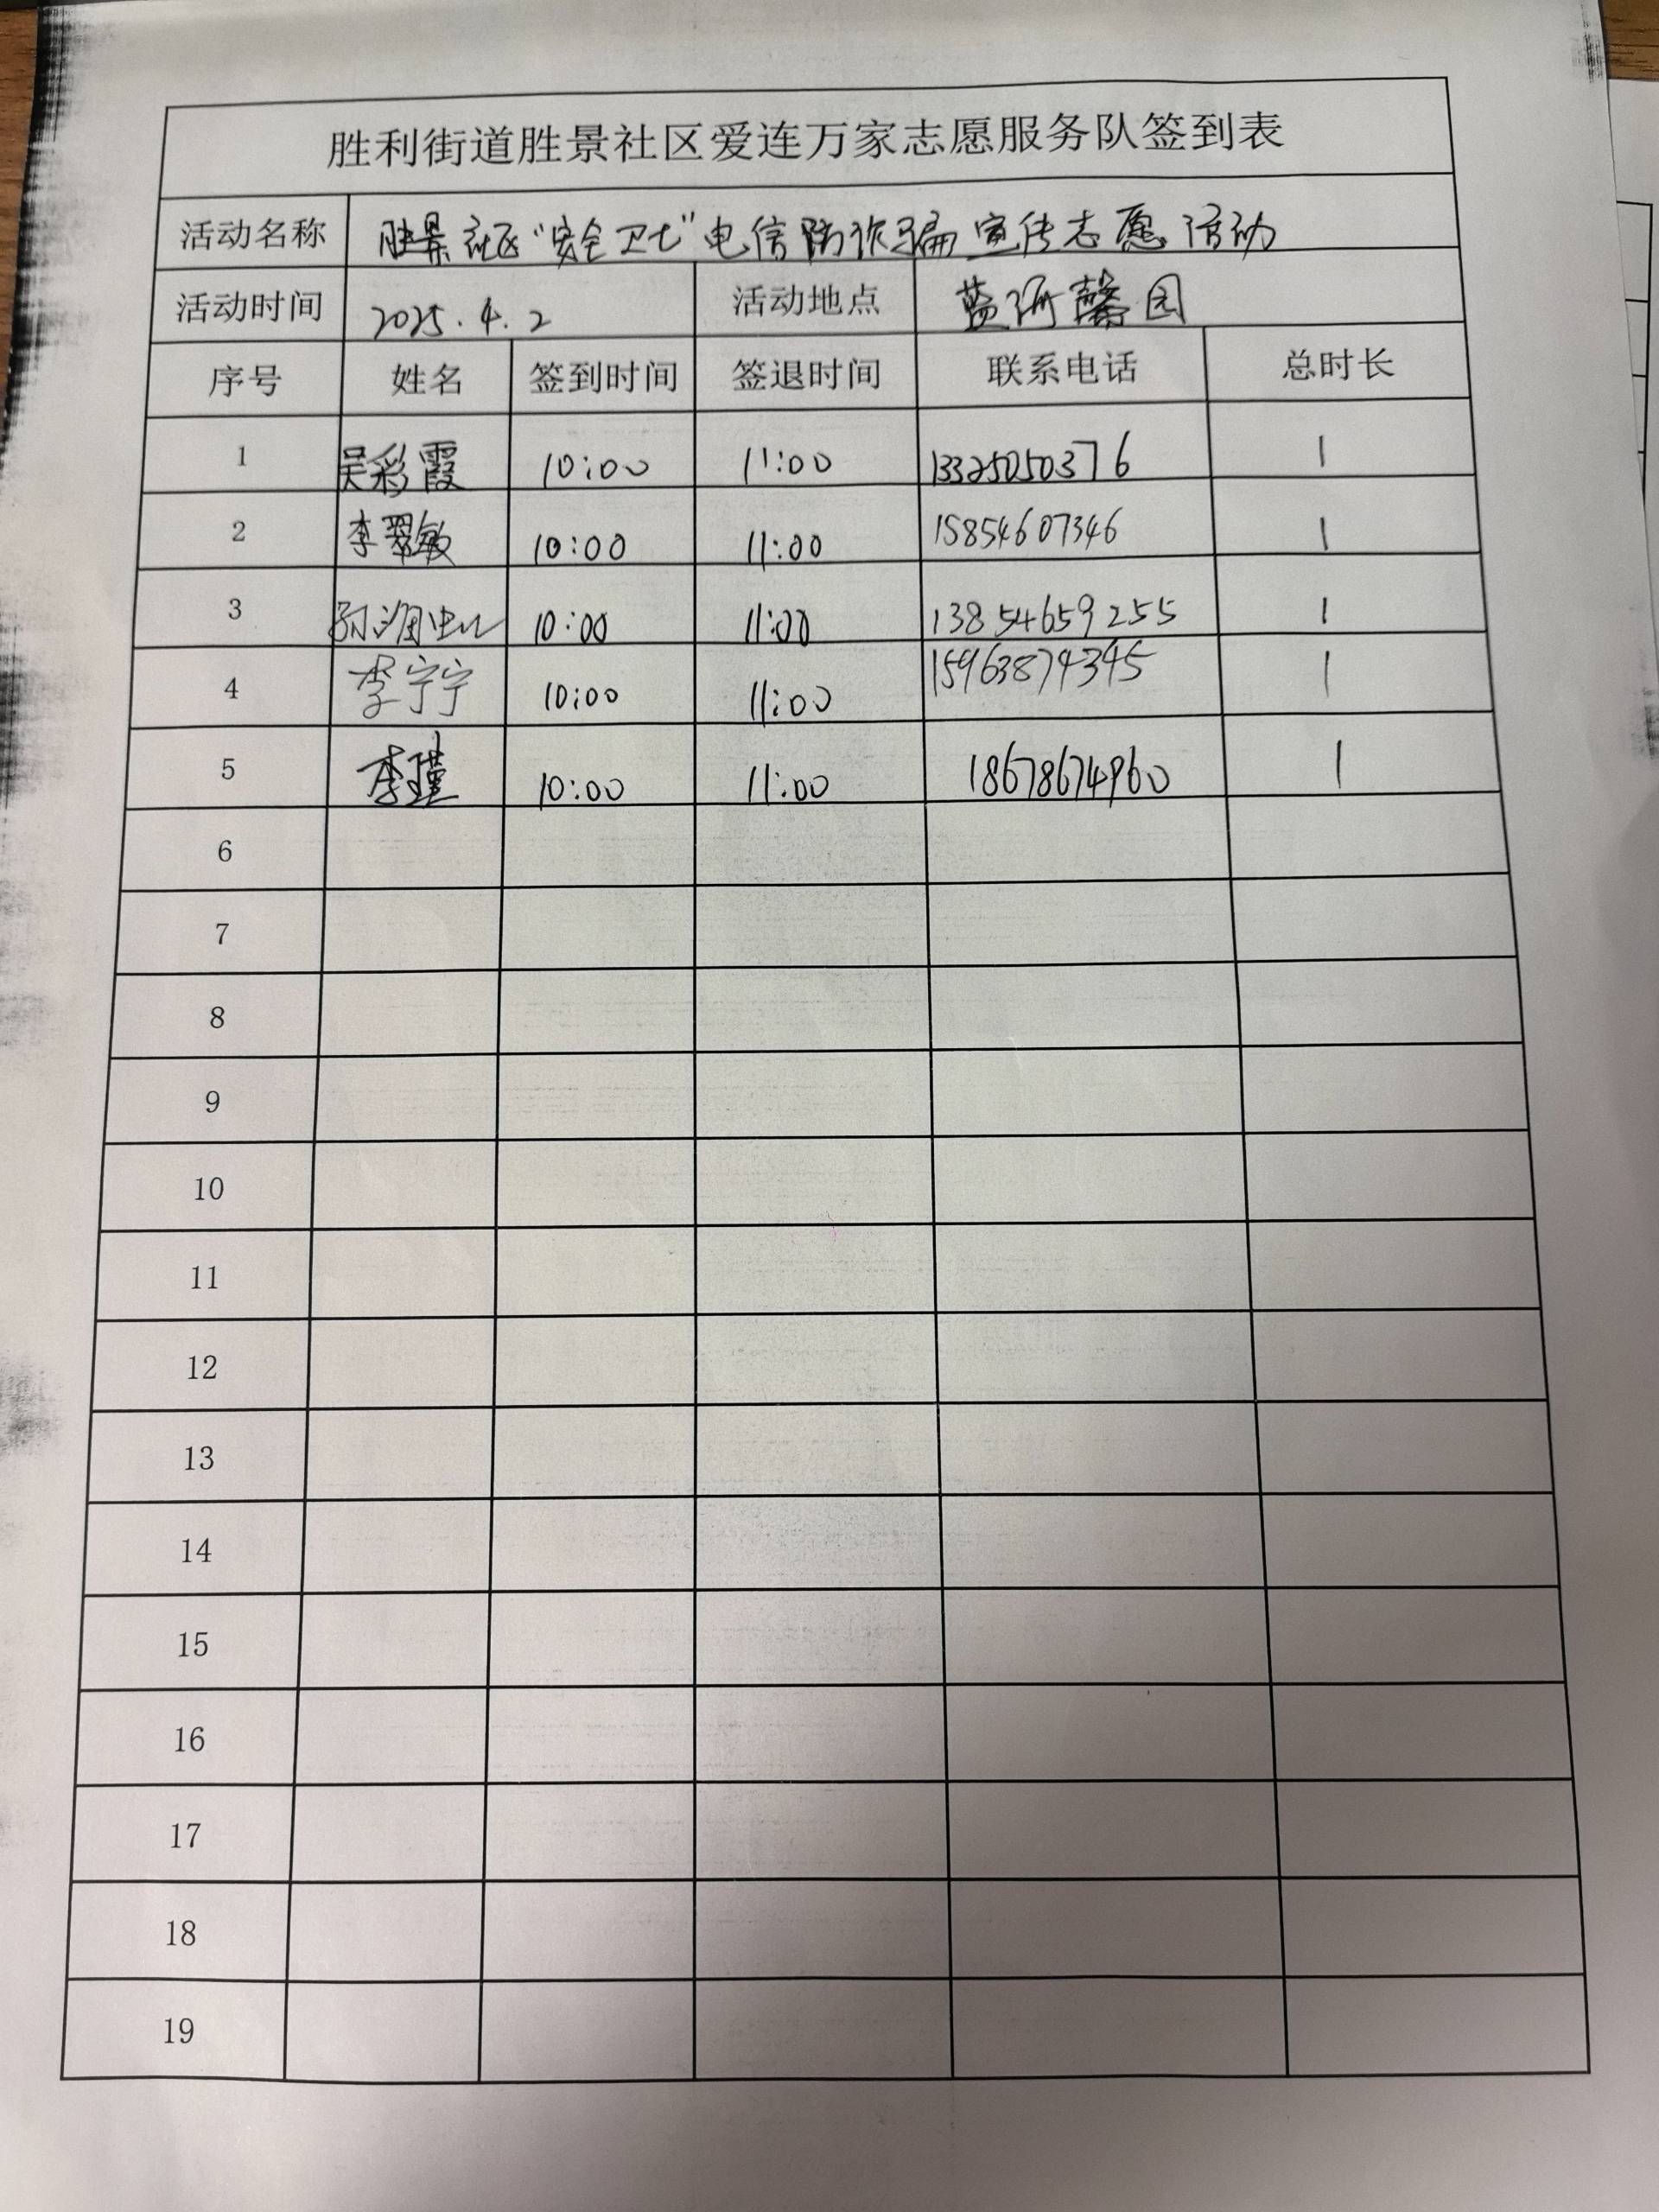 胜利街道胜景社区爱连万家志愿服务队签到表
活动名称 胜景社区“安全卫士”电信防诈骗宣传志愿活动
活动时间 2025.4.2 活动地点 蓝河馨园
序号 姓名 签到时间 签退时间 联系电话 总时长
1 吴彩霞 10:00 11:00 13325050376 1
2 李翠敏 10:00 11:00 15854607346 1
3 10:00 11:00 13854659255 1
4 李宁宁 10:00 11:00 15963874345 1
5 李瑾 10:00 11:00 18678674960 1
6
7
8
9
10
11
12
13
14
15
16
17
18
19